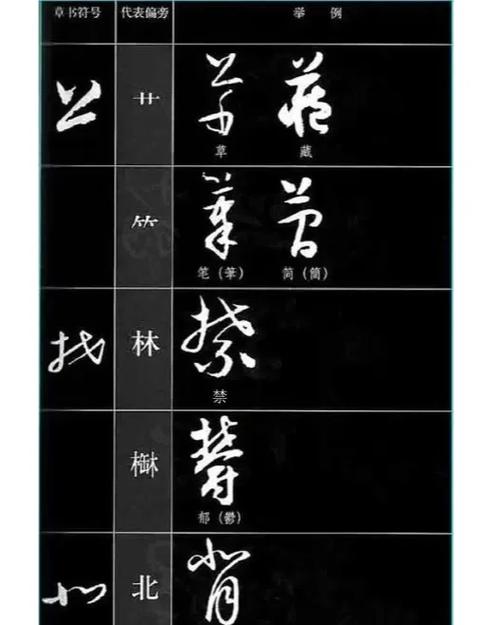 草书符号 代表偏旁 举 例
艹
草 藏
⺮
笔（筆） 简（簡）
林
禁
郁（鬱）
北